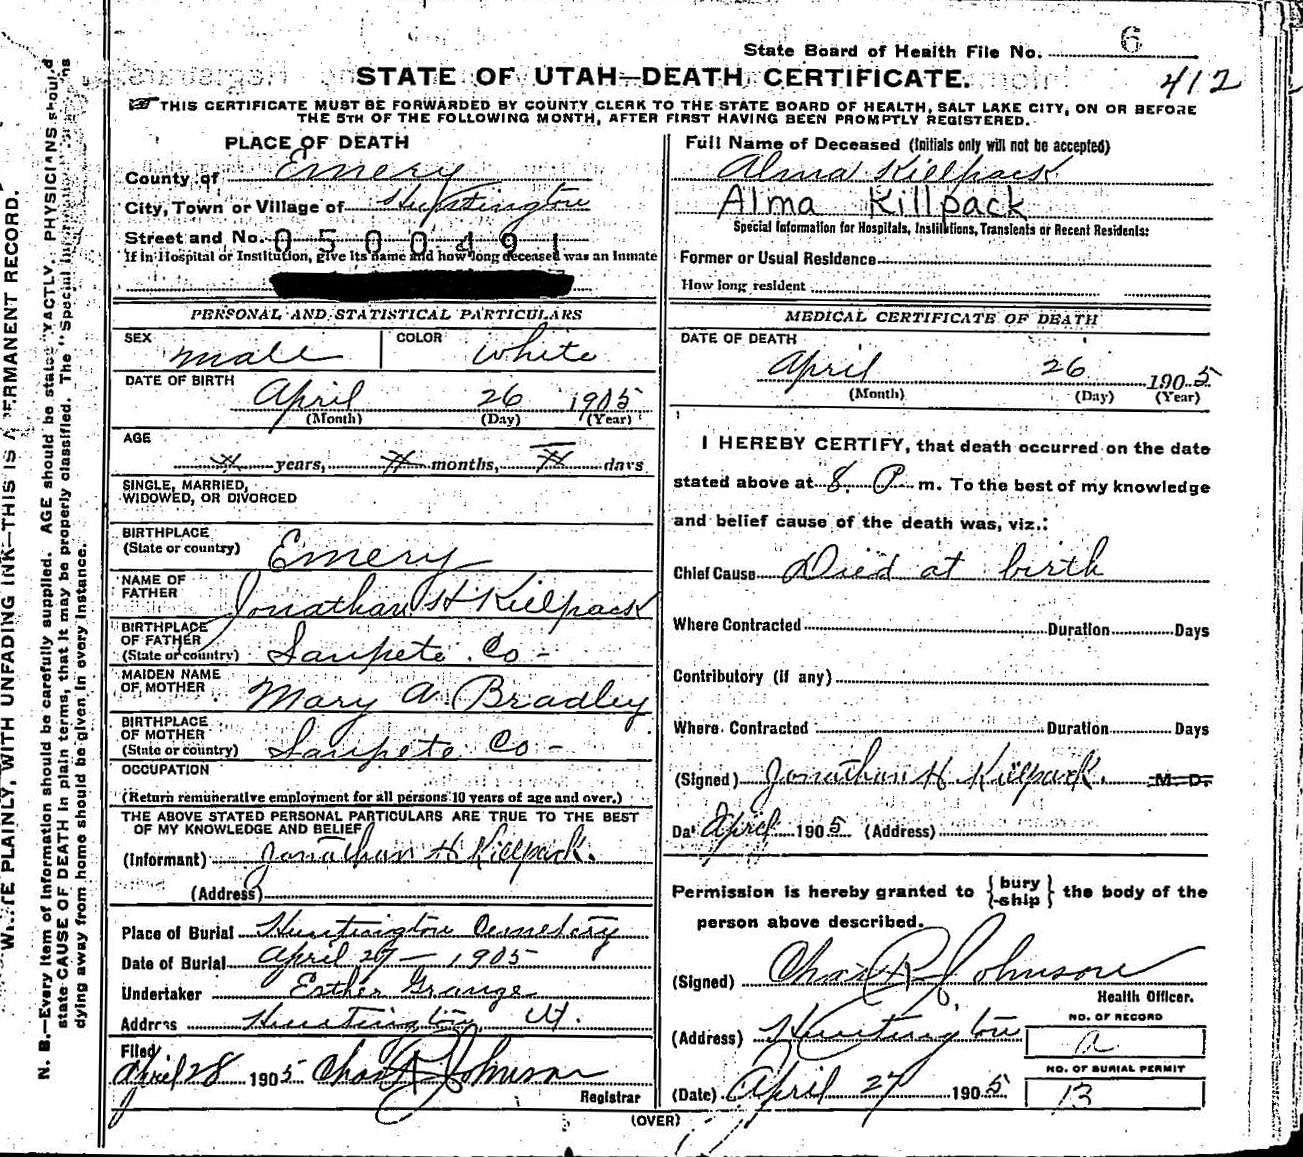 State Board of Health File No. 6
STATE OF UTAH—DEATH CERTIFICATE.
412
THIS CERTIFICATE MUST BE FORWARDED BY COUNTY CLERK TO THE STATE BOARD OF HEALTH, SALT LAKE CITY, ON OR BEFORE
THE 5TH OF THE FOLLOWING MONTH, AFTER FIRST HAVING BEEN PROMPTLY REGISTERED.
PLACE OF DEATH
County of Emery
City, Town or Village of Huntington
Street and No. 0500491
If in Hospital or Institution, give its name and how long deceased was an Inmate
PERSONAL AND STATISTICAL PARTICULARS
SEX male COLOR white
DATE OF BIRTH
April 26 1905
(Month) (Day) (Year)
AGE
years, months, days
SINGLE, MARRIED,
WIDOWED, OR DIVORCED
BIRTHPLACE
(State or country) Emery
NAME OF
FATHER Jonathan H Killpack
BIRTHPLACE
OF FATHER
(State or country) Sanpete Co -
MAIDEN NAME
OF MOTHER Mary A. Bradley
BIRTHPLACE
OF MOTHER
(State or country) Sanpete Co -
OCCUPATION
(Return remunerative employment for all persons 10 years of age and over.)
THE ABOVE STATED PERSONAL PARTICULARS ARE TRUE TO THE BEST
OF MY KNOWLEDGE AND BELIEF
(Informant) Jonathan H Killpack.
(Address)
Place of Burial Huntington Cemetery
Date of Burial April 27 - 1905
Undertaker Esther Grange
Address Huntington Ut.
Filed
April 28 1905 Chas R Johnson
Registrar
Full Name of Deceased (Initials only will not be accepted)
Alma Killpack
Alma Killpack
Special Information for Hospitals, Institutions, Transients or Recent Residents:
Former or Usual Residence
How long resident
MEDICAL CERTIFICATE OF DEATH
DATE OF DEATH
April 26 1905
(Month) (Day) (Year)
I HEREBY CERTIFY, that death occurred on the date
stated above at 8. P. m. To the best of my knowledge
and belief cause of the death was, viz.:
Chief Cause Died at birth
Where Contracted Duration Days
Contributory (if any)
Where Contracted Duration Days
(Signed) Jonathan H Killpack. M. D.
Dat April 1905 (Address)
Permission is hereby granted to { bury
-ship } the body of the
person above described.
(Signed) Chas R Johnson
Health Officer.
(Address) Huntington
NO. OF RECORD
NO. OF BURIAL PERMIT
(Date) April 27 1905 13
(OVER)
PLAINLY, WITH UNFADING INK—THIS IS A PERMANENT RECORD.
N. B.—Every item of information should be carefully supplied. AGE should be stated EXACTLY. PHYSICIANS should
state CAUSE OF DEATH in plain terms, that it may be properly classified. The "Special Information"
dying away from home should be given in every instance.